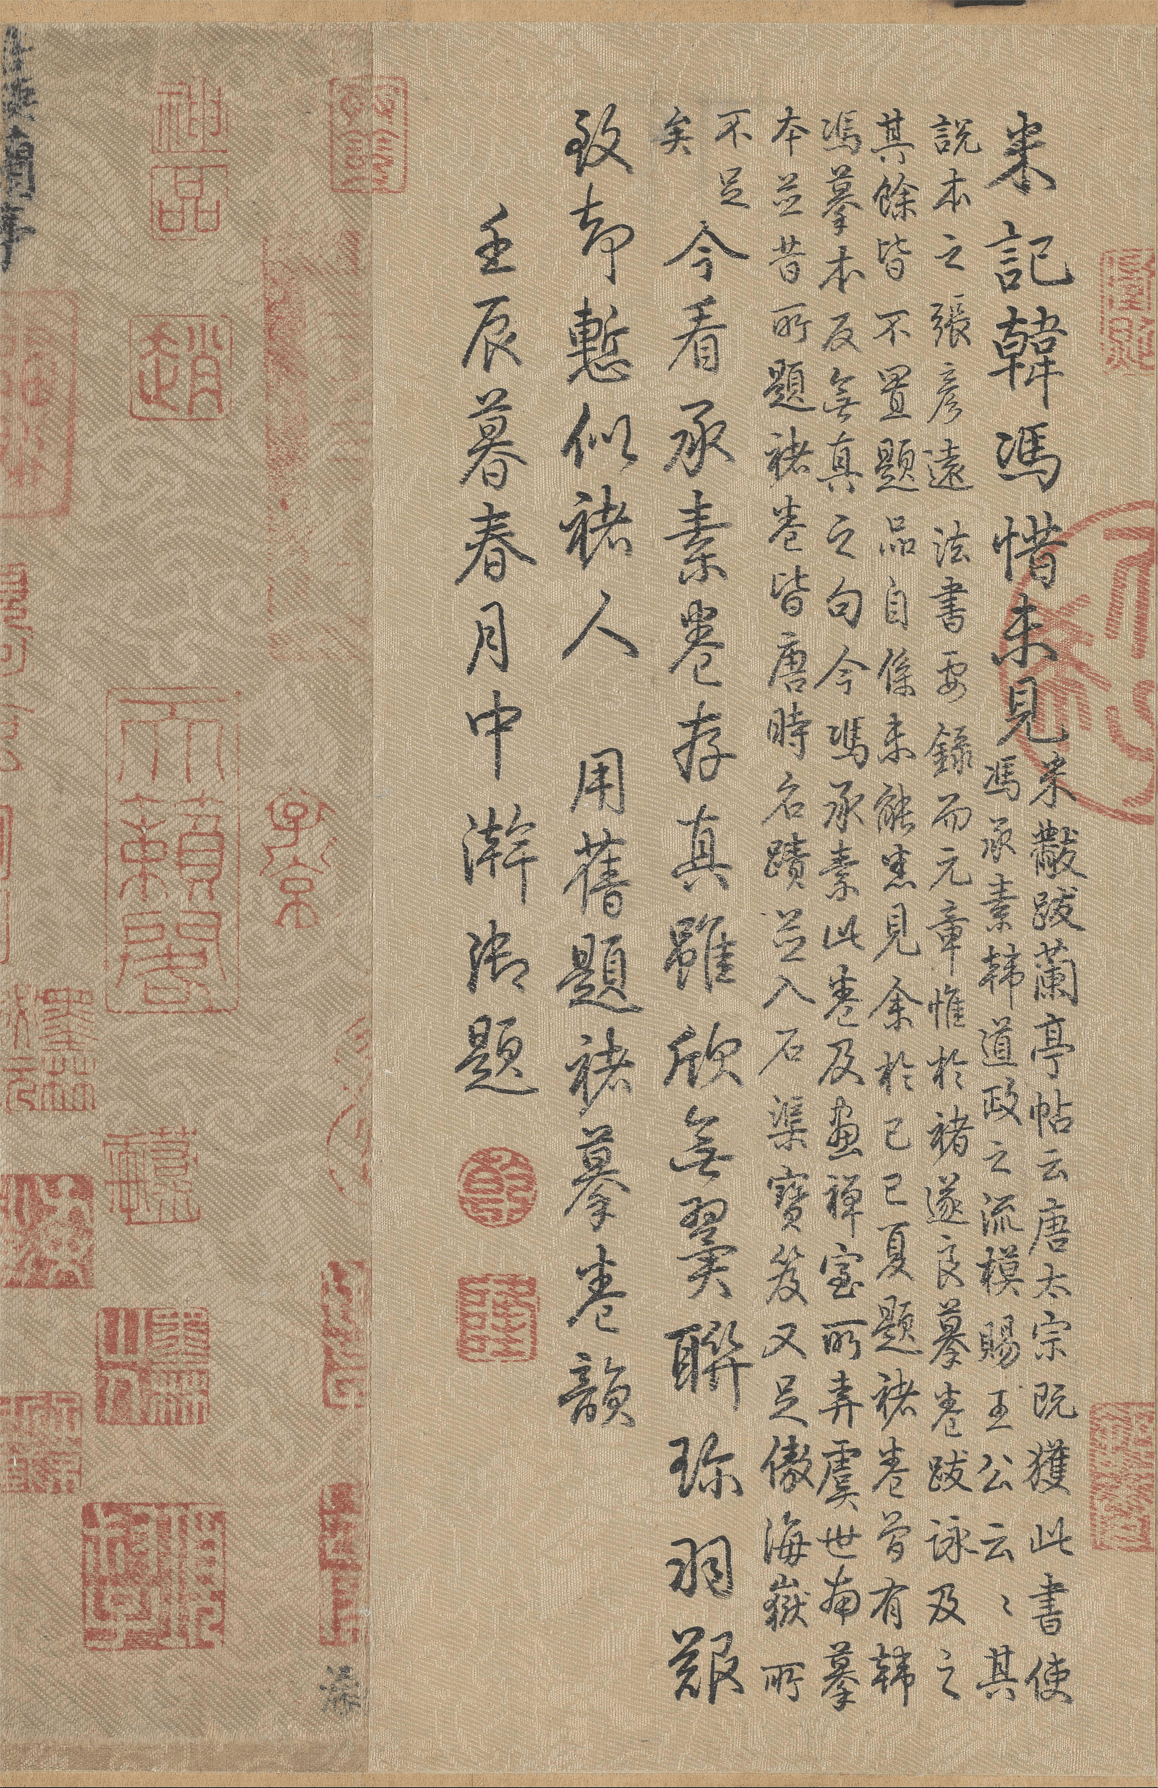 米記韓馮惜未見
米黻跋蘭亭帖云唐太宗既獲此書使
馮承素韓道政之流模賜王公云〻其
說本之張彥遠法書要錄而元章惟於褚遂良摹卷跋詠及之
其餘皆不置題品自係未能悉見余於己巳夏題褚卷曾有韓
馮摹本反無真之句今馮承素此卷及畫禪室所弆虞世南摹
本並昔所題褚卷皆唐時名蹟並入石渠寶笈又足傲海嶽所
不足
矣
今看承素卷存真雖欣無翼聯珎羽艱
致却慙似褚人 用舊題褚摹卷韻
壬辰暮春月中澣御題
乾
隆
神品
趙
子京
天籟閣
墨林